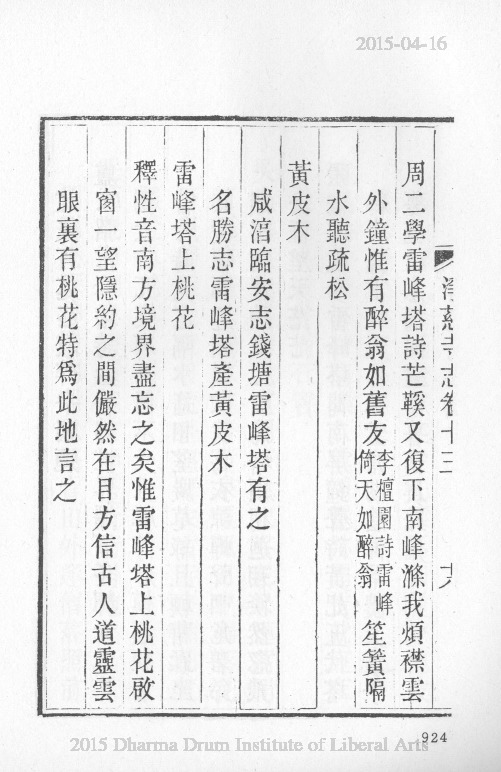 2015-04-16
淨慈寺志卷十三
十八
周二學雷峰塔詩芒鞵又復下南峰滌我煩襟雲
外鐘惟有醉翁如舊友李檀園詩雷峰倚天如醉翁笙簧隔
水聽疏松
黃皮木
咸淳臨安志錢塘雷峰塔有之
名勝志雷峰塔產黃皮木
雷峰塔上桃花
釋性音南方境界盡忘之矣惟雷峰塔上桃花啟
窗一望隱約之間儼然在目方信古人道靈雲
眼裏有桃花特爲此地言之
924
2015 Dharma Drum Institute of Liberal Arts